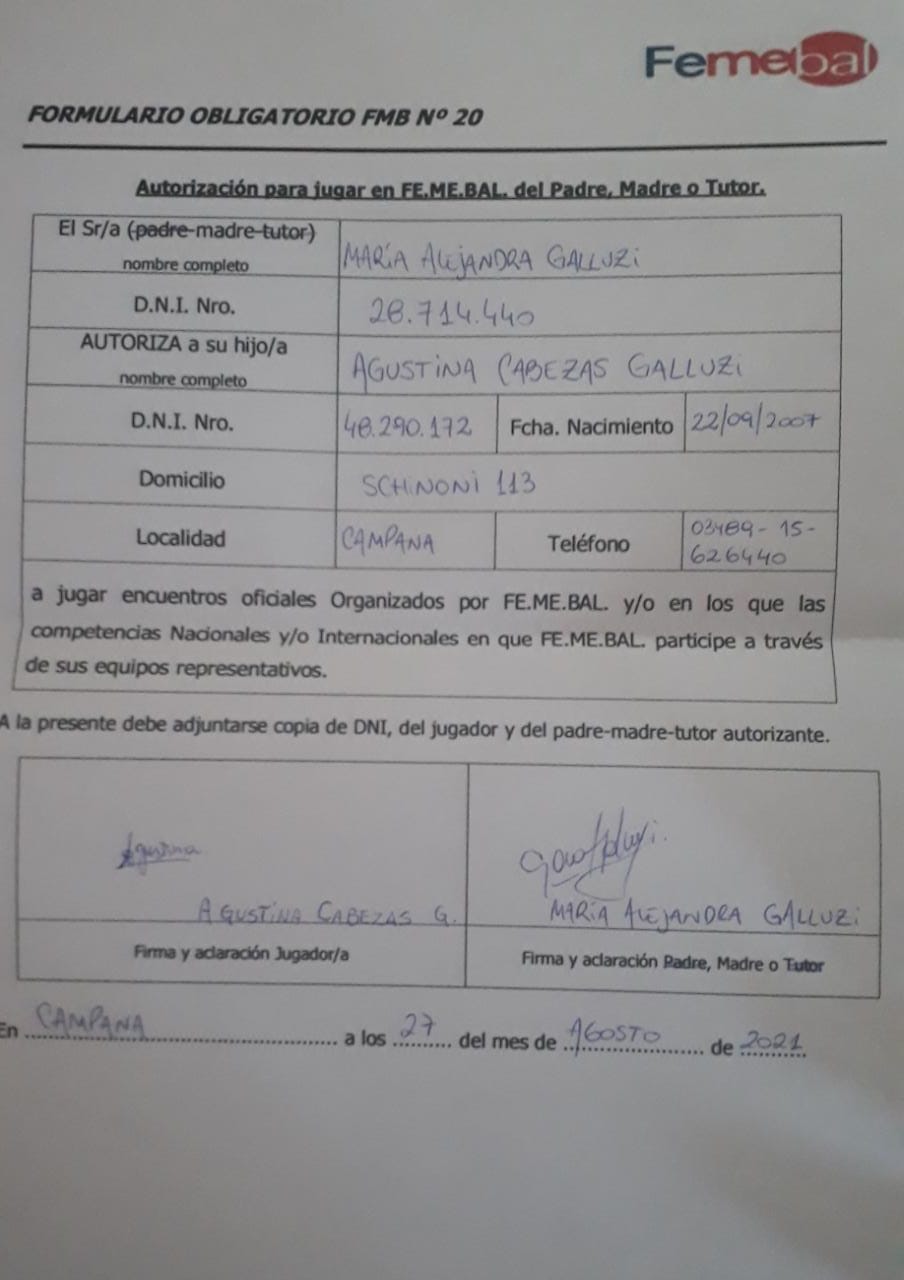 Femebal
FORMULARIO OBLIGATORIO FMB Nº 20
Autorización para jugar en FE.ME.BAL. del Padre, Madre o Tutor.
El Sr/a (padre-madre-tutor)
nombre completo
MARÍA ALEJANDRA GALLUZI
D.N.I. Nro.
28.714.440
AUTORIZA a su hijo/a
nombre completo
AGUSTINA CABEZAS GALLUZI
D.N.I. Nro.
48.290.172
Fcha. Nacimiento
22/09/2007
Domicilio
SCHINONI 113
Localidad
CAMPANA
Teléfono
03489-15-
626440
a jugar encuentros oficiales Organizados por FE.ME.BAL. y/o en los que las
competencias Nacionales y/o Internacionales en que FE.ME.BAL. participe a través
de sus equipos representativos.
A la presente debe adjuntarse copia de DNI, del jugador y del padre-madre-tutor autorizante.
Agustina
AGUSTINA CABEZAS G.
MARÍA ALEJANDRA GALLUZI
Firma y aclaración Jugador/a
Firma y aclaración Padre, Madre o Tutor
En CAMPANA a los 27 del mes de AGOSTO de 2021